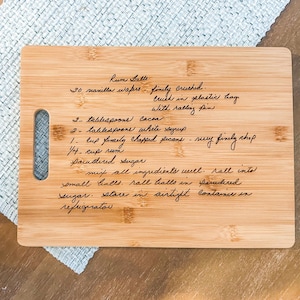 Rum Balls
30 vanilla wafers - finely crushed.
Crush in plastic bag
with rolling pin
2 - tablespoons cocoa
2 - tablespoons white syrup
1 - cup finely chopped pecans - very finely chop
1/4 - cup rum
powdered sugar
mix all ingredients well - roll into
small balls. roll balls in powdered
sugar. Store in airtight container in
refrigerator